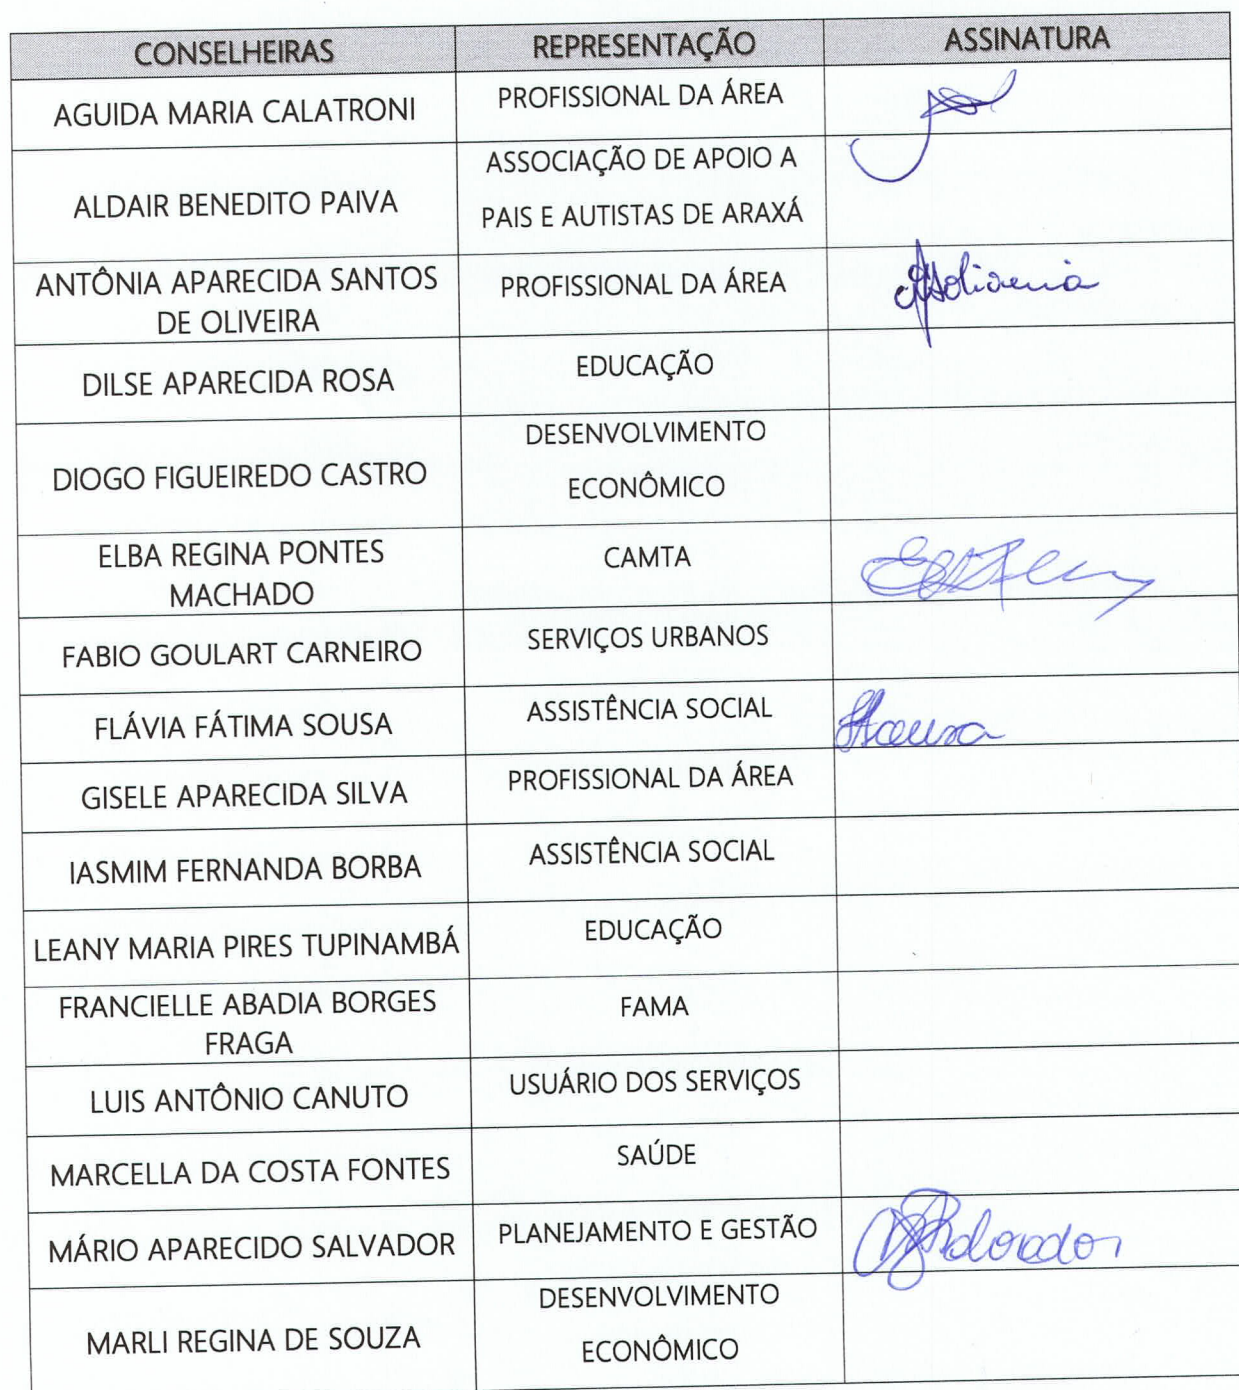 CONSELHEIRAS REPRESENTAÇÃO ASSINATURA
AGUIDA MARIA CALATRONI PROFISSIONAL DA ÁREA
ALDAIR BENEDITO PAIVA ASSOCIAÇÃO DE APOIO A
PAIS E AUTISTAS DE ARAXÁ
ANTÔNIA APARECIDA SANTOS
DE OLIVEIRA
PROFISSIONAL DA ÁREA
DILSE APARECIDA ROSA EDUCAÇÃO
DIOGO FIGUEIREDO CASTRO DESENVOLVIMENTO
ECONÔMICO
ELBA REGINA PONTES
MACHADO
CAMTA
FABIO GOULART CARNEIRO SERVIÇOS URBANOS
FLÁVIA FÁTIMA SOUSA ASSISTÊNCIA SOCIAL
GISELE APARECIDA SILVA PROFISSIONAL DA ÁREA
IASMIM FERNANDA BORBA ASSISTÊNCIA SOCIAL
LEANY MARIA PIRES TUPINAMBÁ EDUCAÇÃO
FRANCIELLE ABADIA BORGES
FRAGA
FAMA
LUIS ANTÔNIO CANUTO USUÁRIO DOS SERVIÇOS
MARCELLA DA COSTA FONTES SAÚDE
MÁRIO APARECIDO SALVADOR PLANEJAMENTO E GESTÃO
MARLI REGINA DE SOUZA DESENVOLVIMENTO
ECONÔMICO